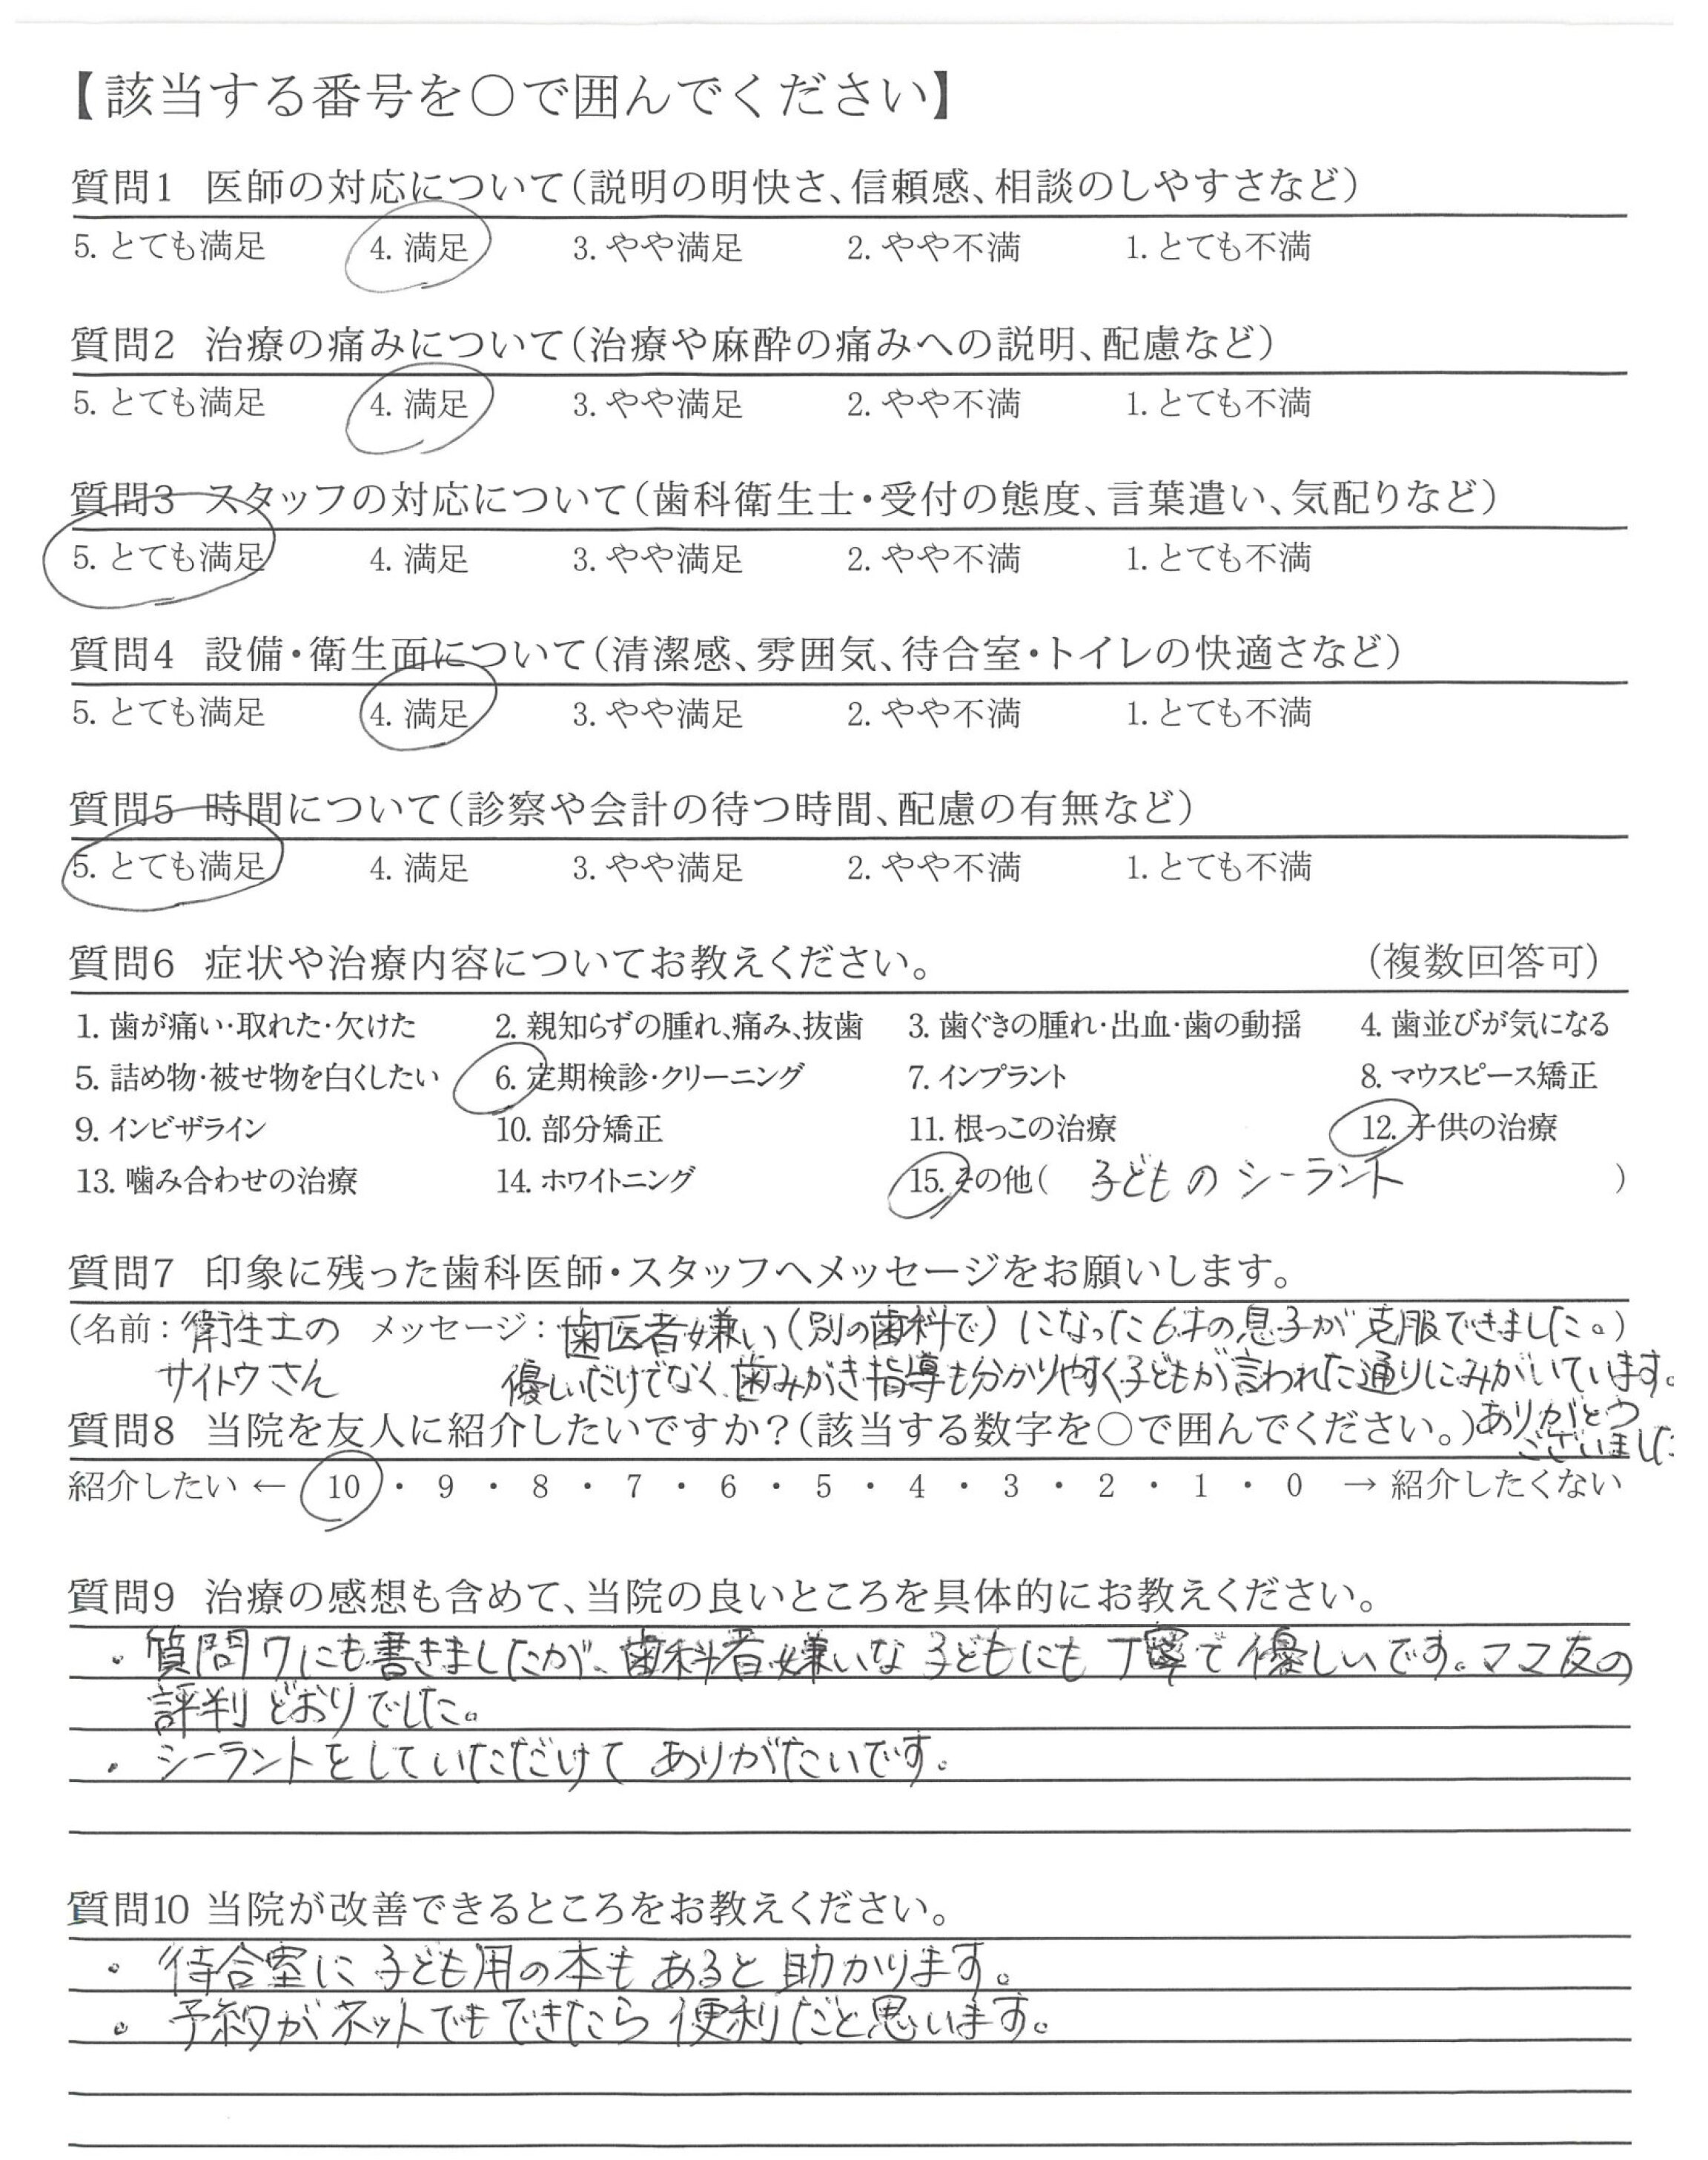 【該当する番号を○で囲んでください】
質問1 医師の対応について(説明の明快さ、信頼感、相談のしやすさなど)
5. とても満足 4. 満足 3. やや満足 2. やや不満 1. とても不満
質問2 治療の痛みについて(治療や麻酔の痛みへの説明、配慮など)
5. とても満足 4. 満足 3. やや満足 2. やや不満 1. とても不満
質問3 スタッフの対応について(歯科衛生士・受付の態度、言葉遣い、気配りなど)
5. とても満足 4. 満足 3. やや満足 2. やや不満 1. とても不満
質問4 設備・衛生面について(清潔感、雰囲気、待合室・トイレの快適さなど)
5. とても満足 4. 満足 3. やや満足 2. やや不満 1. とても不満
質問5 時間について(診察や会計の待つ時間、配慮の有無など)
5. とても満足 4. 満足 3. やや満足 2. やや不満 1. とても不満
質問6 症状や治療内容についてお教えください。 (複数回答可)
1. 歯が痛い・取れた・欠けた 2. 親知らずの腫れ、痛み、抜歯 3. 歯ぐきの腫れ・出血・歯の動揺 4. 歯並びが気になる
5. 詰め物・被せ物を白くしたい 6. 定期検診・クリーニング 7. インプラント 8. マウスピース矯正
9. インビザライン 10. 部分矯正 11. 根っこの治療 12. 子供の治療
13. 噛み合わせの治療 14. ホワイトニング 15. その他( 子どものシーラント )
質問7 印象に残った歯科医師・スタッフへメッセージをお願いします。
(名前:衛生士の メッセージ:歯医者嫌い(別の歯科で)になった6才の息子が克服できました。)
サイトウさん 優しいだけでなく、歯みがき指導も分かりやすく子どもが言われた通りにみがいています。
質問8 当院を友人に紹介したいですか?(該当する数字を○で囲んでください。)ありがとう
ございました
紹介したい ← 10 ・ 9 ・ 8 ・ 7 ・ 6 ・ 5 ・ 4 ・ 3 ・ 2 ・ 1 ・ 0 → 紹介したくない
質問9 治療の感想も含めて、当院の良いところを具体的にお教えください。
・質問7にも書きましたが、歯科者嫌いな子どもにも丁寧で優しいです。ママ友の
評判どおりでした。
・シーラントをしていただけてありがたいです。
質問10 当院が改善できるところをお教えください。
・待合室に子ども用の本もあると助かります。
・予約がネットでもできたら便利だと思います。